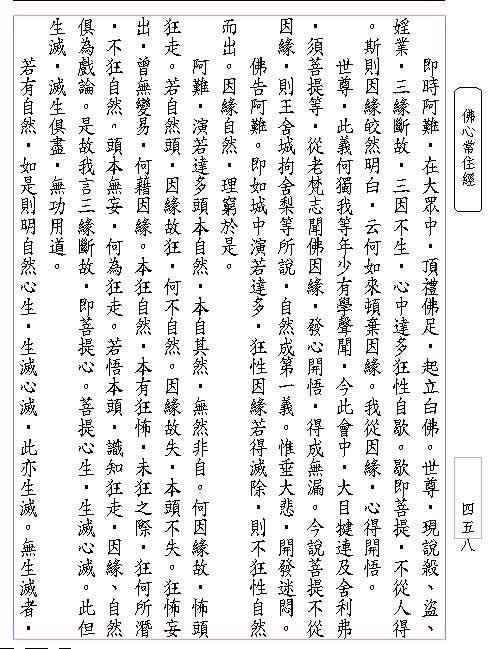 佛心常住經
四五八
即時阿難，在大眾中，頂禮佛足，起立白佛。世尊，現說殺、盜、
婬業，三緣斷故，三因不生，心中達多狂性自歇。歇即菩提，不從人得
。斯則因緣皎然明白，云何如來頓棄因緣。我從因緣，心得開悟。
世尊，此義何獨我等年少有學聲聞，今此會中，大目犍連及舍利弗
，須菩提等，從老梵志聞佛因緣，發心開悟，得成無漏。今說菩提不從
因緣，則王舍城拘舍梨等所說，自然成第一義。惟垂大悲，開發迷悶。
佛告阿難。即如城中演若達多，狂性因緣若得滅除，則不狂性自然
而出。因緣自然，理窮於是。
阿難，演若達多頭本自然，本自其然，無然非自。何因緣故，怖頭
狂走。若自然頭，因緣故狂，何不自然。因緣故失，本頭不失。狂怖妄
出，曾無變易，何藉因緣。本狂自然，本有狂怖，未狂之際，狂何所潛
，不狂自然。頭本無妄，何為狂走。若悟本頭，識知狂走，因緣、自然
俱為戲論。是故我言三緣斷故，即菩提心。菩提心生，生滅心滅。此但
生滅，滅生俱盡，無功用道。
若有自然，如是則明自然心生，生滅心滅，此亦生滅。無生滅者，